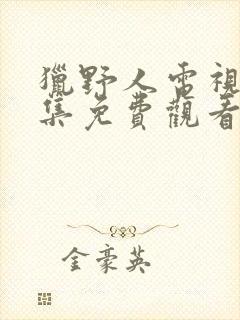 獵野人電視
集免費觀看
金豪英